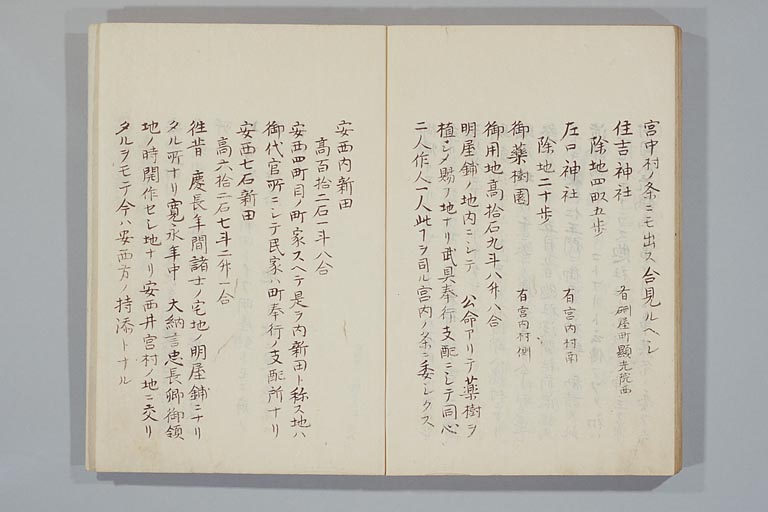 宮中村ノ条ニモ出ス合見ルヘシ
住吉神社 有研屋町顕光院西
除地四畝五歩
左口神社 有宮内村南
除地二十歩
御薬樹園 有宮内村側
御用地高拾石九斗八升八合
明屋鋪ノ地内ニシテ 公命アリテ薬樹ヲ
植シメ賜フ地ナリ武具奉行支配ニシテ同心
二人作人一人此ヿヲ司ル宮内ノ条ニ委シクス
安西内新田
高百拾二石一斗八合
安西四町目ノ町家スヘテ是ヲ内新田ト称ス地ハ
御代官所ニシテ民家ハ町奉行ノ支配所ナリ
安西七石新田
高六拾二石七斗二升一合
往昔 慶長年間諸士ノ宅地ノ明屋鋪ニナリ
タル所ナリ寛永年中 大納言忠長卿御領
地ノ時開作セシ地ナリ安西井宮村ノ地ニ交リ
タルヲモテ今ハ安西方ノ持添トナル